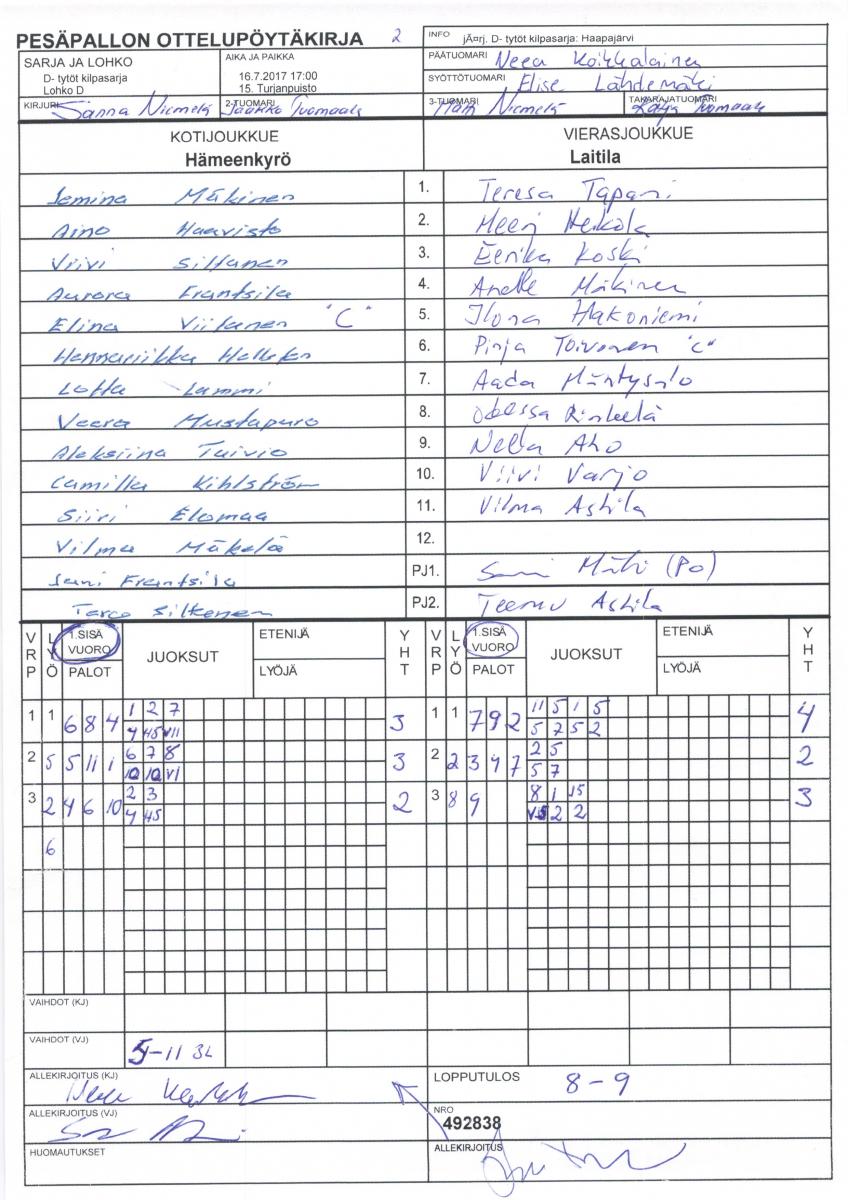 PESÄPALLON OTTELUPÖYTÄKIRJA 2
INFO jÃ¤rj. D- tytöt kilpasarja: Haapajärvi
SARJA JA LOHKO
D- tytöt kilpasarja
Lohko D
AIKA JA PAIKKA
16.7.2017 17:00
15. Turjanpuisto
PÄÄTUOMARI Neea Koikkalainen
SYÖTTÖTUOMARI Elise Lähdemäki
KIRJURI Sanna Niemelä
2-TUOMARI Jaakko Tuomaala
3-TUOMARI Niemelä
TAKARAJATUOMARI Katja Tuomaala
KOTIJOUKKUE
Hämeenkyrö
VIERASJOUKKUE
Laitila
Jemina Mäkinen 1. Teresa Tapani
Aino Haavisto 2. Meeri Heikola
Viivi Siltanen 3. Eerika Koski
Aurora Frantsila 4. Anette Mäkinen
Elina Viitanen "C" 5. Ilona Hakoniemi
Hennariikka Hellsten 6. Pinja Toivonen "C"
Lotta Lammi 7. Aada Mäntysalo
Veera Mustapuro 8. Odessa Rinteelä
Aleksiina Taivio 9. Nella Aho
Camilla Kihlström 10. Viivi Varjo
Siiri Elomaa 11. Vilma Astila
Vilma Mäkelä 12.
Jani Frantsila PJ1. Mäki (PO)
Silkenen PJ2. Teemu Astila
VRP LYÖ 1.SISÄ VUORO PALOT JUOKSUT ETENIJÄ LYÖJÄ YHT
VRP LYÖ 1.SISÄ VUORO PALOT JUOKSUT ETENIJÄ LYÖJÄ YHT
1 1 6 8 4 1 2 7 3 1 1 7 9 2 11 5 1 5 4
4 45 VII 5 7 5 2
2 5 5 11 1 6 7 8 3 2 2 3 4 7 2 5 2
10 10 VI 5 7
3 2 4 6 10 2 3 2 3 8 9 8 1 15 3
4 45 2 2
6
VAIHDOT (KJ)
VAIHDOT (VJ) 5-11 3L
ALLEKIRJOITUS (KJ)
LOPPUTULOS 8-9
ALLEKIRJOITUS (VJ)
NRO
492838
HUOMAUTUKSET
ALLEKIRJOITUS